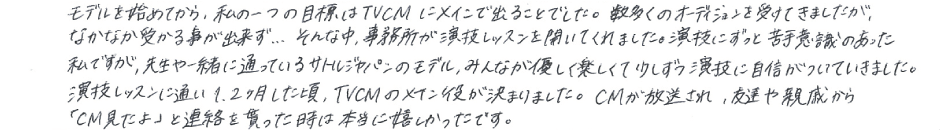 モデルを始めてから、私の一つの目標はTVCMにメインで出ることでした。数多くのオーディションを受けてきましたが、
なかなか受かる事が出来ず… そんな中、事務所が演技レッスンを開いてくれました。演技にずっと苦手意識のあった
私ですが、先生や一緒に通っているサトルジャパンのモデル、みんなが優しく楽しくて少しずつ演技に自信がついていきました。
演技レッスンに通い1、2ヶ月した頃、TVCMのメイン役が決まりました。CMが放送され、友達や親戚から
「CM見たよ」と連絡を貰った時は本当に嬉しかったです。